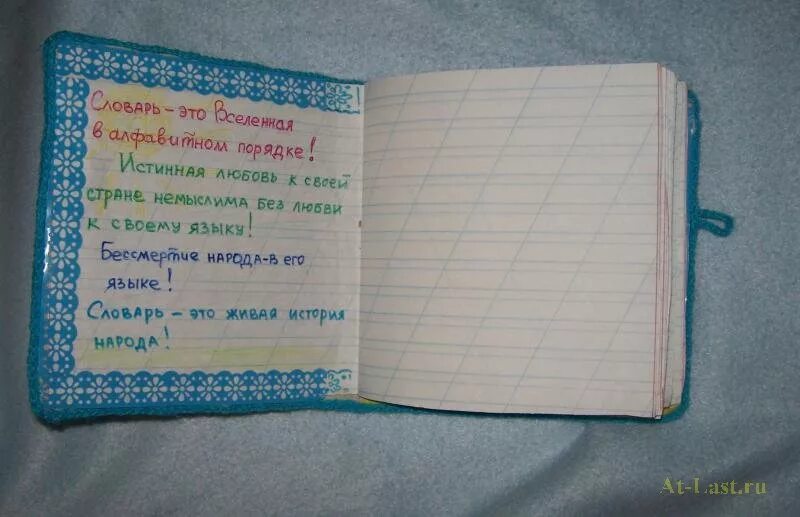 Словарь – это Вселенная
в алфавитном порядке!
Истинная любовь к своей
стране немыслима без любви
к своему языку!
Бессмертие народа-в его
языке!
Словарь – это живая история
народа!
At-Last.ru